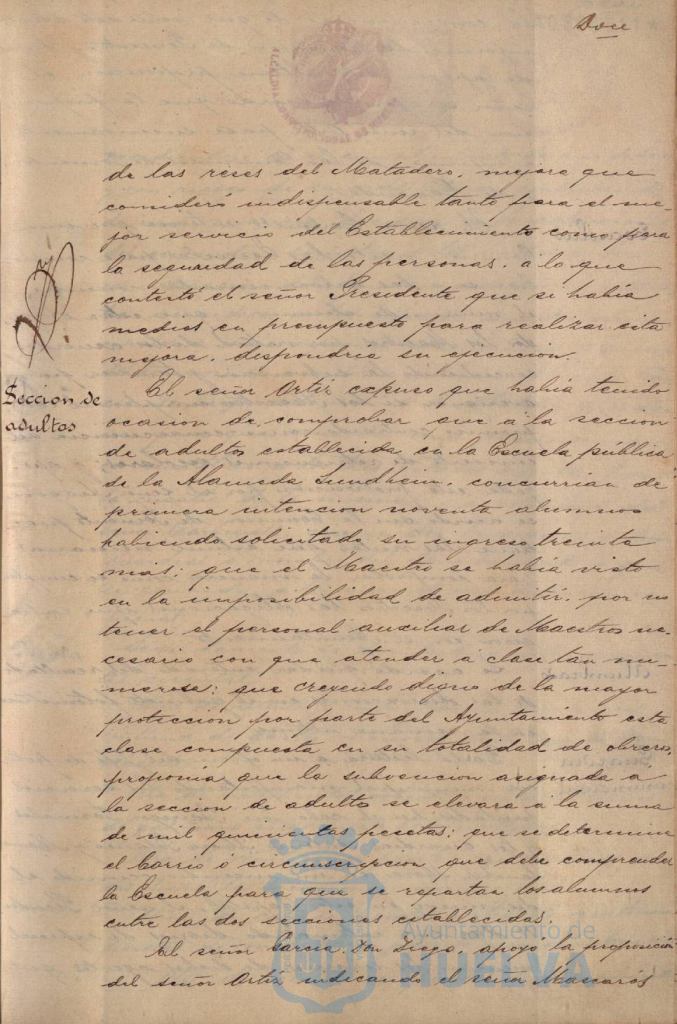 Doce
de las reses del Matadero, mejora que
consideró indispensable tanto para el me-
jor servicio del Establecimiento como para
la seguridad de las personas, a lo que
contestó el señor Presidente que si habia
medios en presupuesto para realizar esta
mejora, dispondria su ejecucion.
Seccion de
adultos
El señor Ortiz expuso que habia tenido
ocasion de comprobar que á la seccion
de adultos establecida en la Escuela pública
de la Alameda Sundheim, concurrian de
primera intencion noventa alumnos
habiendo solicitado su ingreso treinta
más; que el Maestro se habia visto
en la imposibilidad de admitir, por no
tener el personal auxiliar de Maestros ne-
cesario con que atender á clase tan nu-
merosa; que creyendo digno de la mayor
proteccion por parte del Ayuntamiento esta
clase compuesta en su totalidad de obreros,
proponia que la subvencion asignada á
la seccion de adultos se elevara á la suma
de mil quinientas pesetas; que se determine
el barrio ó circunscripcion que debe comprender
la Escuela para que se repartan los alumnos
entre las dos secciones establecidas.
El señor Garcia, Don Diego, apoyó la proposición
del señor Ortiz indicando el señor Mascarós
Ayuntamiento de
HUELVA